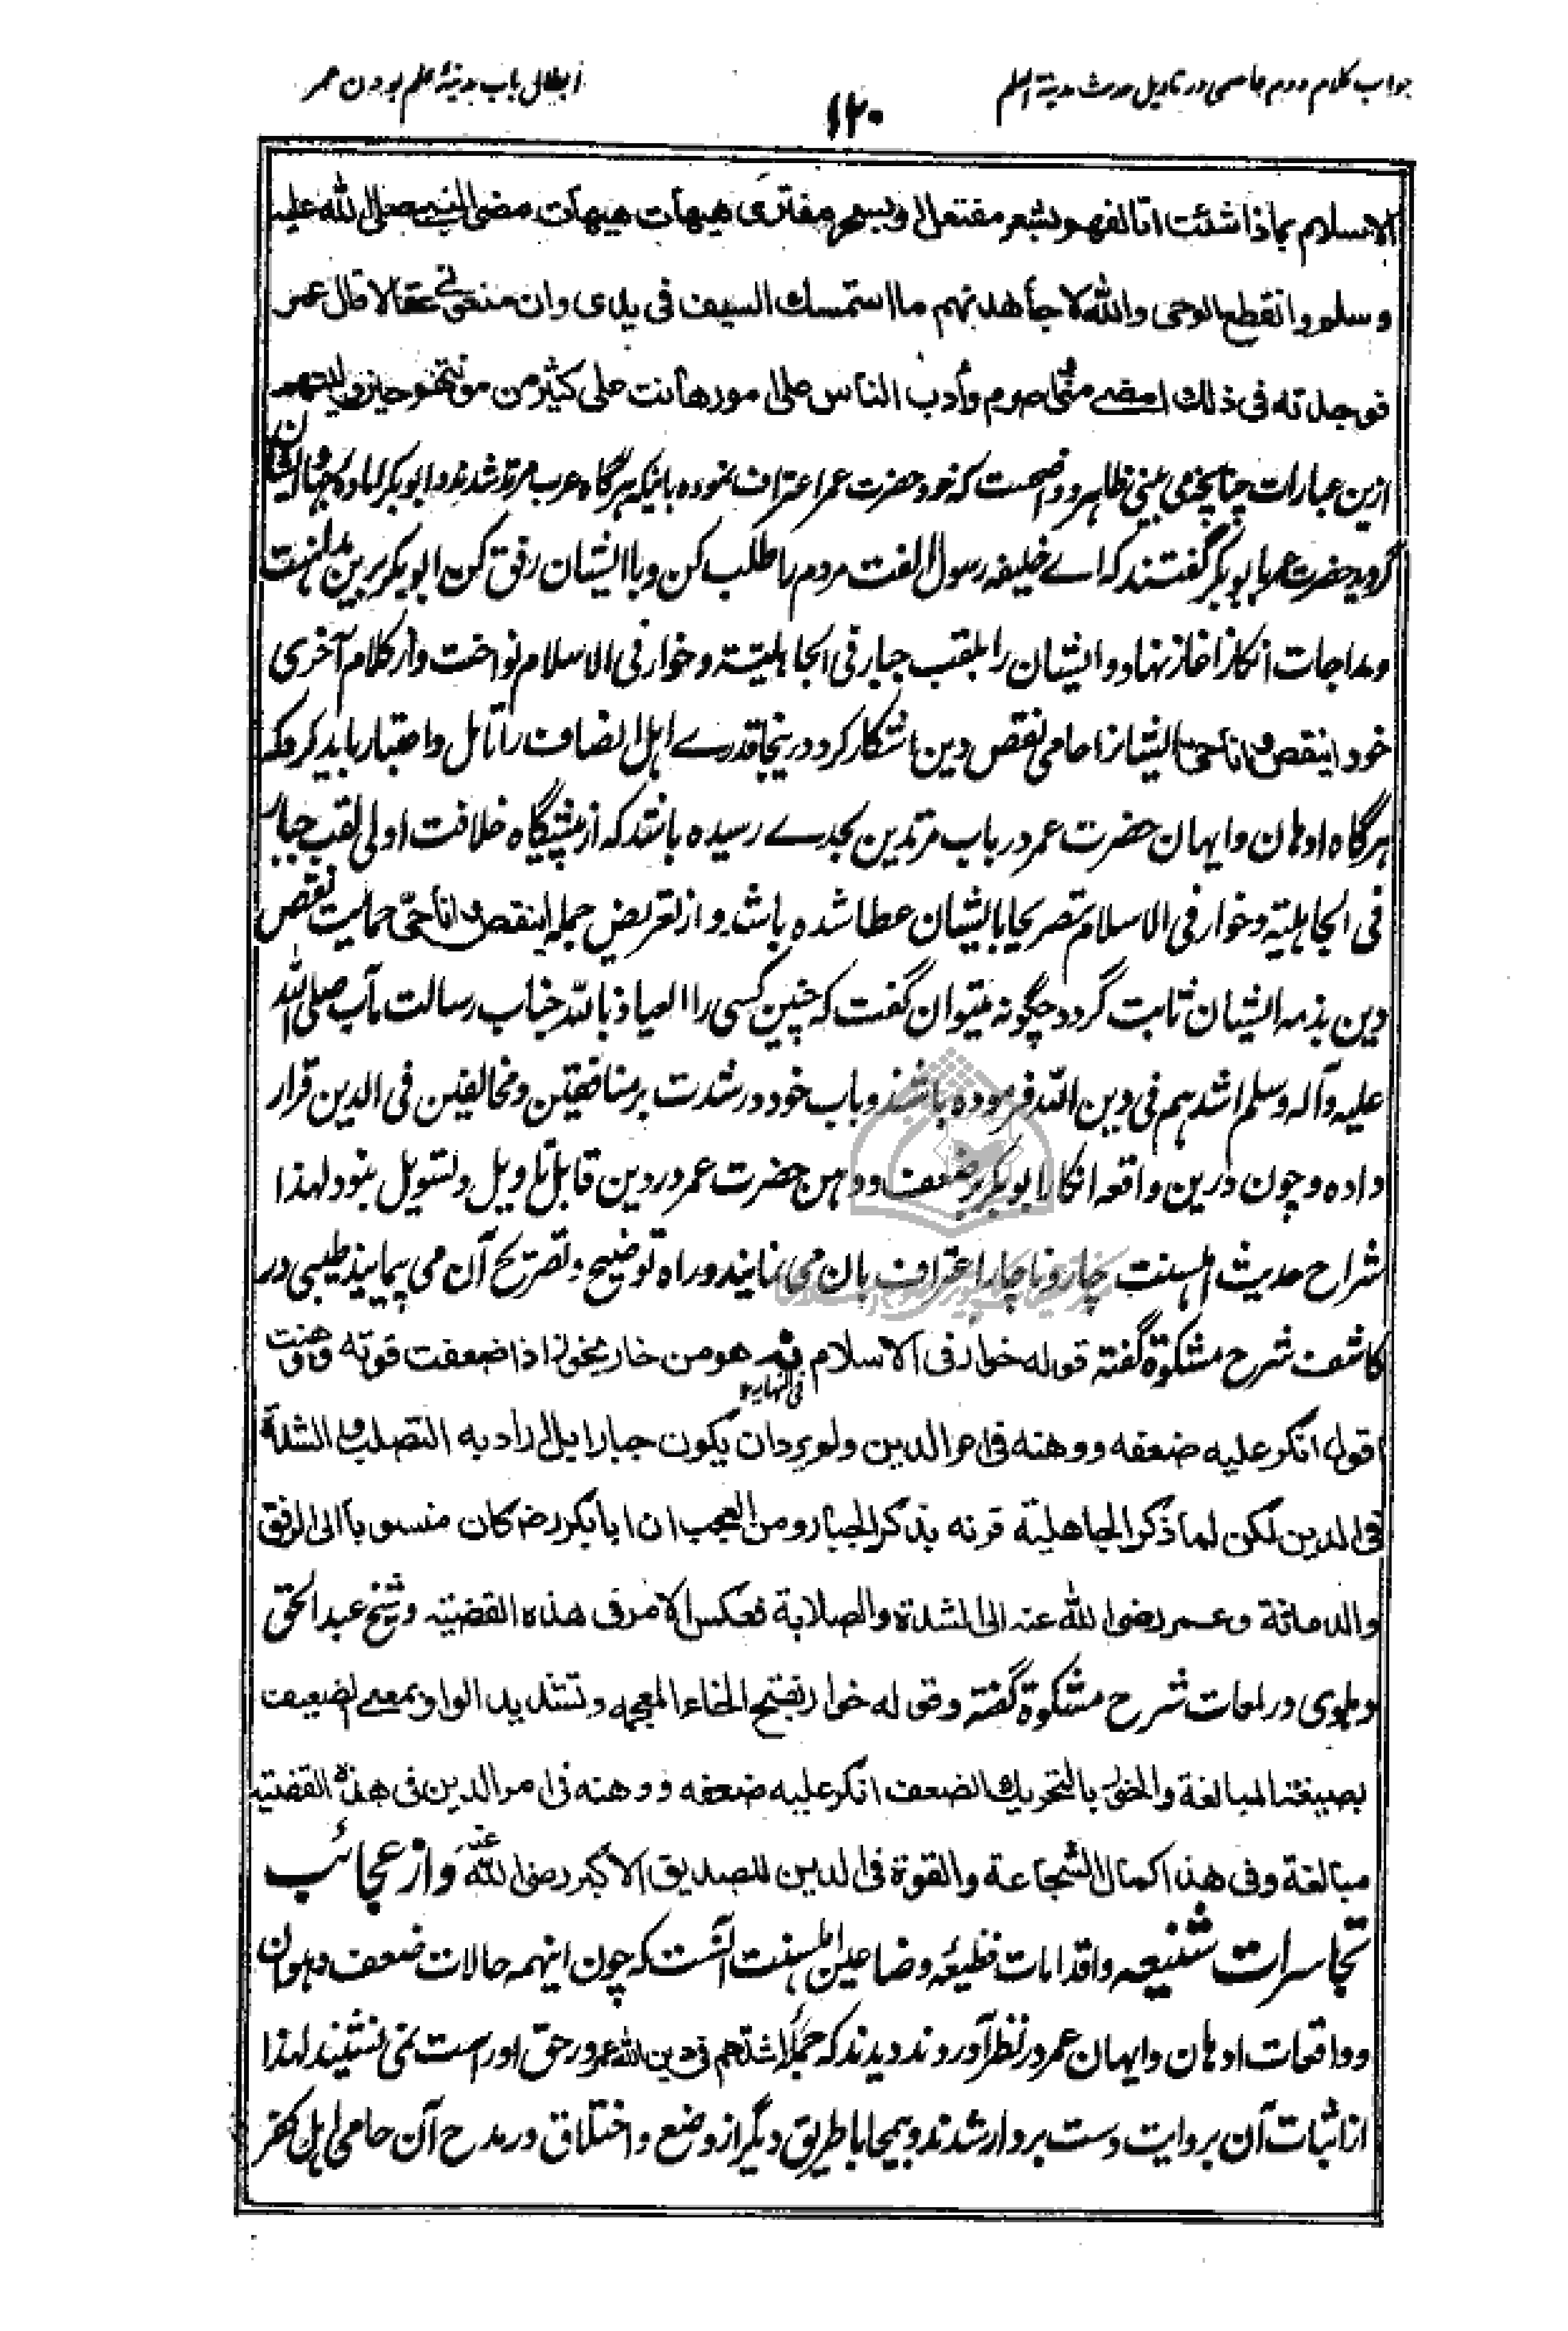 جواب کلام دوم عاصمی در تاویل حدیث مدینة العلم
ابطال باب مدینۂ علم بودن عمر
۱۲۰
الاسلام بماذا شئت اتالفهم بشعر مفتعل او بسحر مفتری هیهات هیهات مضی النبی صلی الله علیه
وسلم وانقطع الوحی والله لاجاهدنهم ما استمسك السیف فی یدی وان منعونی عقالا قال عمر
فوجدته فی ذلك امضی منی واصرم وأدب الناس علی امور هانت علی کثیر من مونتهم حین ولیتهم
ازین عبارات چنانچه می بینی ظاهر و واضحست که خود حضرت عمر اعتراف نموده باینکه هرگاه عرب مرتد شدند و ابوبکر آماده جهاد ایشان
گردید حضرت عمر بابوبکر گفتند که اے خلیفه رسول الفت مردم را طلب کن و با ایشان رفق کن ابوبکر برین مداهنت
و مداجات انکار آغاز نهاد و ایشان را بلقب جبار فی الجاهلیة و خوار فی الاسلام نواخت و از کلام آخری
خود اینقص و انا حی ایشانرا حامی نقص دین آشکار کرد درینجا قدرے اهل انصاف را تامل و اعتبار باید کرد که
هرگاه ادهان و ایهان حضرت عمر در باب مرتدین بحدے رسیده باشد که از پیشگاه خلافت اولی لقب جبار
فی الجاهلیة و خوار فی الاسلام تصریحا بایشان عطا شده باشد و از تعریض جمله اینقص و انا حیّ حمایت نقص
دین بذمه ایشان ثابت گردد چگونه میتوان گفت که چنین کسی را العیاذ بالله جناب رسالت مآب صلی الله
علیه وآله وسلم اشدهم فی دین الله فرموده باشند و باب خود در شدت بر منافقین و مخالفین فی الدین قرار
داده و چون درین واقعه انکار ابوبکر بر ضعف و وهن حضرت عمر در دین قابل تاویل و تسویل نبود لهذا
شراح حدیث اهلسنت چار و ناچار اعتراف بان می نمایند و راه توضیح و تصریح آن می پیمایند طیبی در
کاشف شرح مشکوة گفته قوله خوار فی الاسلام نه هو من خار یخور اذا ضعفت قوته و وهنت
فی النهایه
اقول انکر علیه ضعفه ووهنه فی امر الدین ولم یرد ان یکون جبارا بل اراد به التصلب والشدة
فی الدین لکن لما ذکر الجاهلیة قرنه بذکر الجبار ومن العجب ان ابا بکر رض کان منسوبا الی الرفق
والدماثة وعمر رضی الله عنه الی الشدة والصلابة فعکس الامر فی هذه القضیة و شیخ عبد الحق
دهلوی در لمعات شرح مشکوة گفته وقوله خوار بفتح الخاء المعجمة وتشدید الواو بمعنی لضعیف
بصیغة المبالغة والخور بالتحریك الضعف انکر علیه ضعفه ووهنه فی امر الدین فی هذه القضیة
مبالغة وفی هذا کمال الشجاعة والقوة فی الدین للصدیق الاکبر رضی الله عنه و از عجائب
تجاسرات شنیعه و اقدامات فظیعۂ وضاعین اهلسنت آنست که چون اینهمه حالات ضعف و هوان
و واقعات ادهان و ایهان عمر در نظر آوردند دیدند که جملۂ اشدهم فی دین الله عمر در حق او راست نمی نشیند لهذا
از اثبات آن بروایت دست بردار شدند و بیمحابا طریق دیگر از وضع و اختلاق در مدح آن حامی اهل کفر